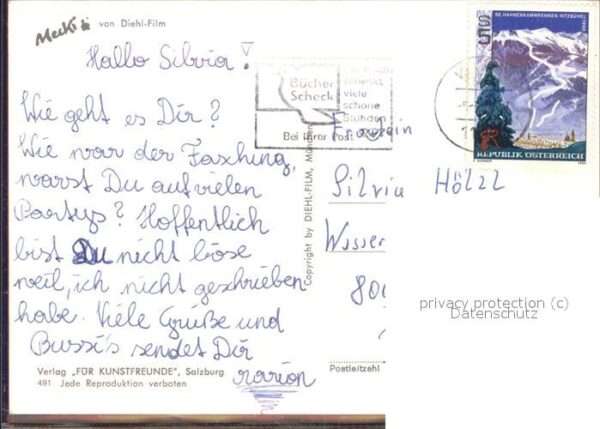 Mecki von Diehl-Film
Hallo Silvia!
Wie geht es Dir?
Wie war der Fasching,
warst Du auf vielen
Partys? Hoffentlich
bist Du nicht böse
weil, ich nicht geschrieben
habe. Viele Grüße und
Bussi's sendet Dir
Marion
Verlag „FÜR KUNSTFREUNDE", Salzburg
491 Jede Reproduktion verboten
Copyright by DIEHL-FILM, München
Bücher
Scheck
viele
schöne
Stunden
Bei Ihrer Post
S5
50. HAHNENKAMMRENNEN KITZBÜHEL
REPUBLIK ÖSTERREICH
Fräulein
Silvia Hölzl
Wasser
800
Postleitzahl
privacy protection (c)
Datenschutz